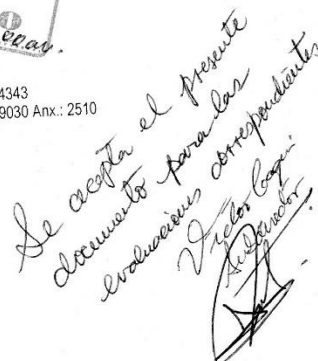 4343
9030 Anx.: 2510
Se acepta el presente
documento para las
evaluaciones correspondientes